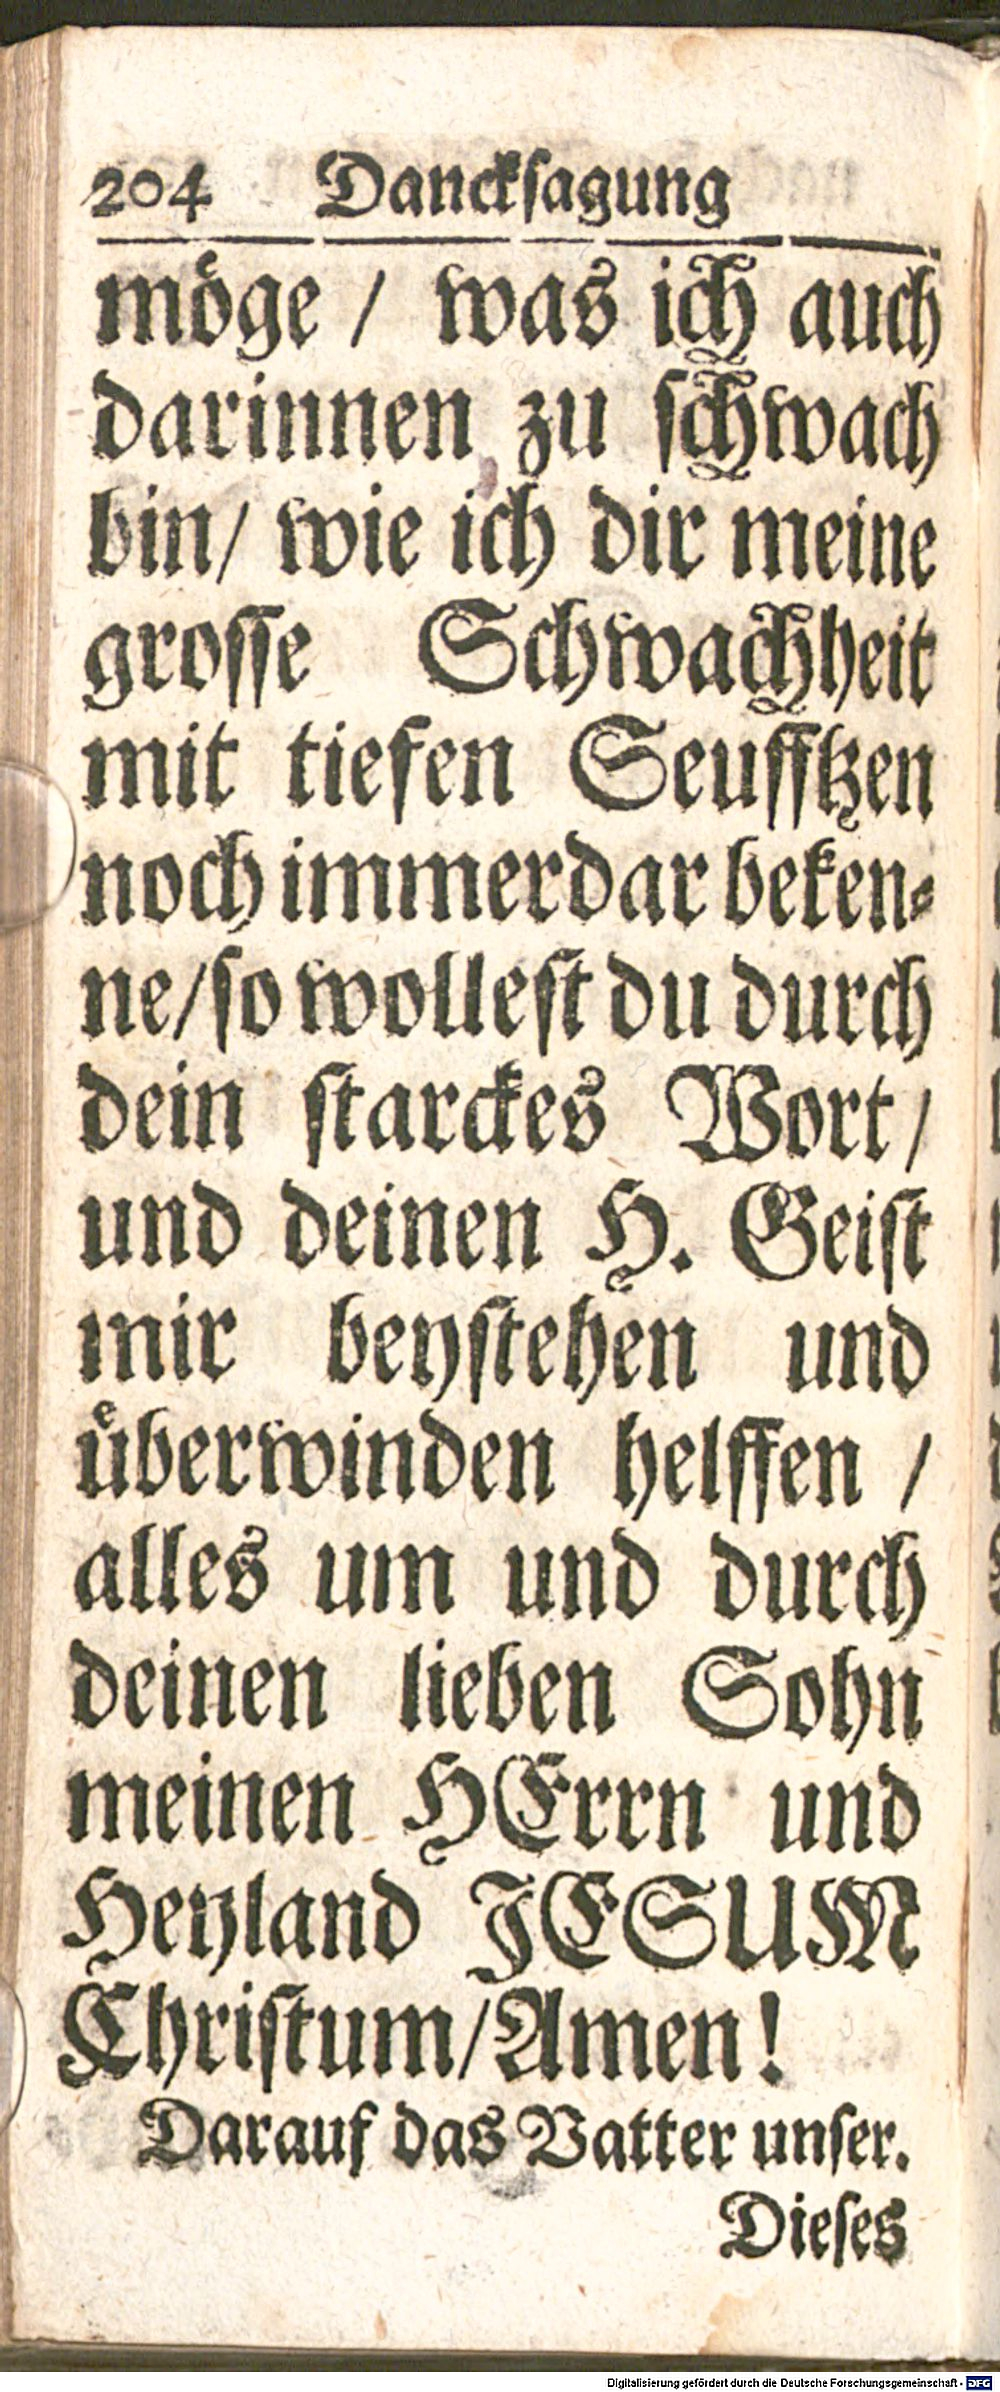 204 Danckſagung
moͤge / was ich auch
darinnen zu ſchwach
bin/ wie ich dir meine
groſſe Schwachheit
mit tiefen Seufftzen
noch immerdar beken⸗
ne/ſo wolleſt du durch
dein ſtarckes Wort/
und deinen H. Geiſt
mir beyſtehen und
uͤberwinden helffen /
alles um und durch
deinen lieben Sohn
meinen HErrn und
Heyland JESUM
Chriſtum/Amen!
Darauf das Vatter unſer.
Dieſes
Digitalisierung gefördert durch die Deutsche Forschungsgemeinschaft - DFG